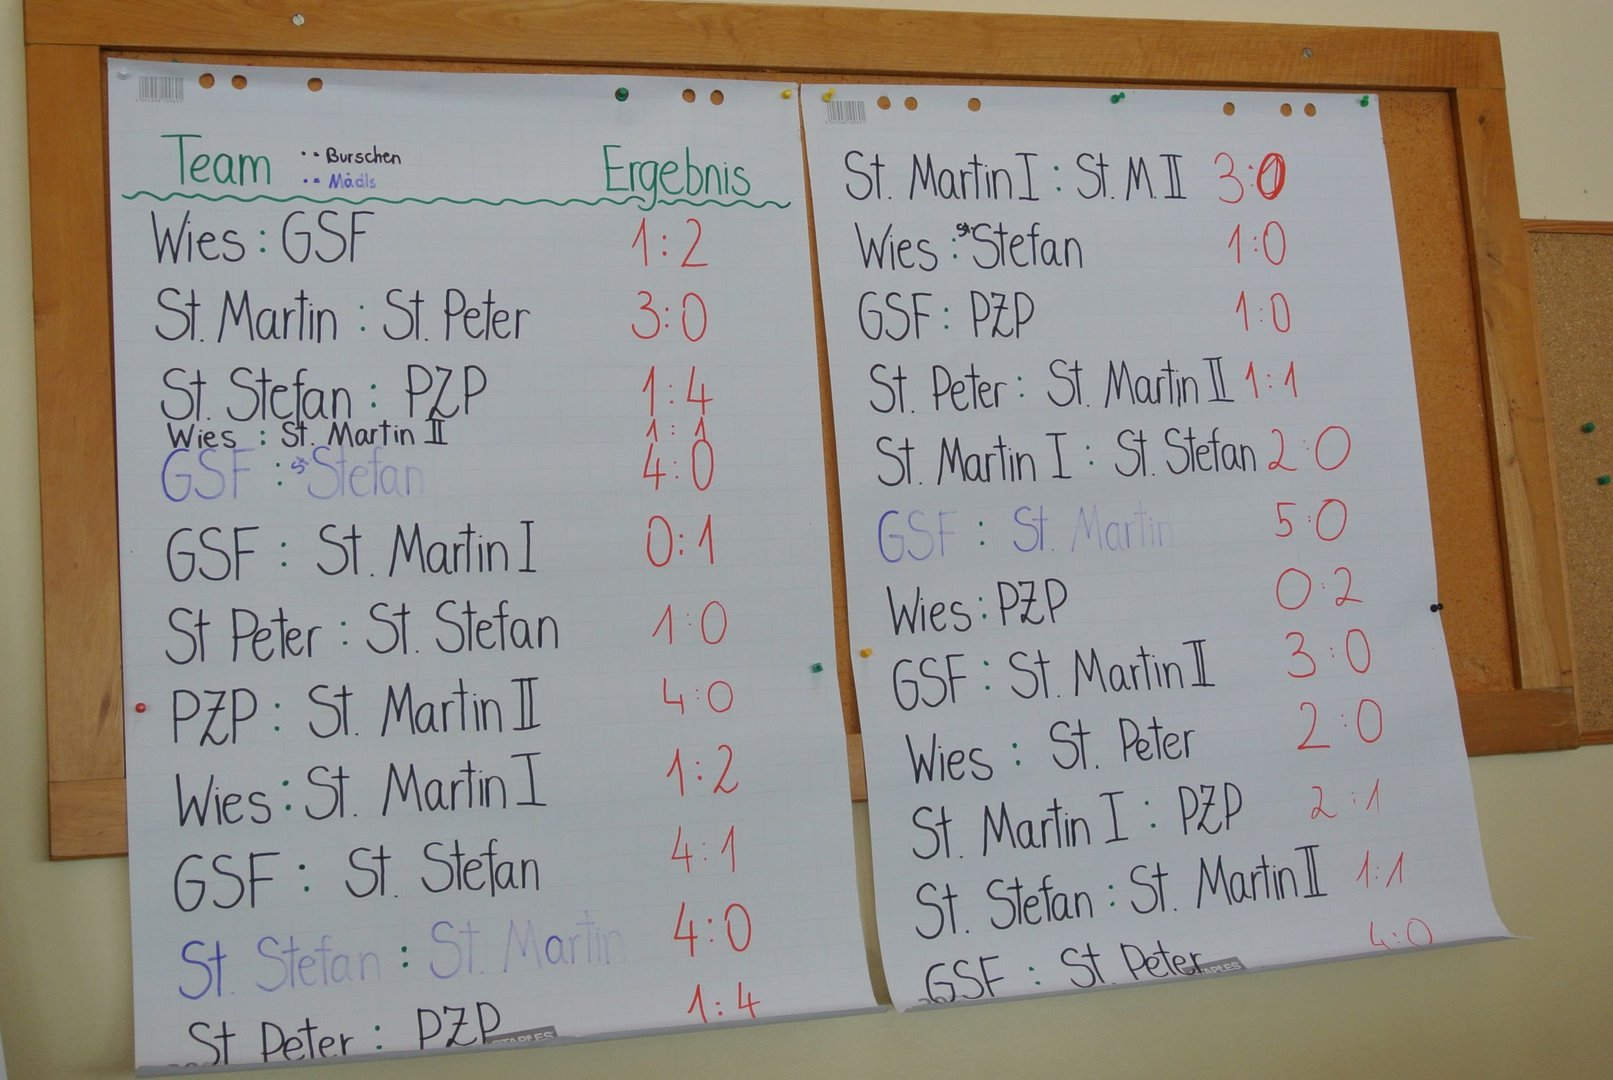 Team ·· Burschen Ergebnis
·· Mädls
Wies : GSF 1:2
St. Martin : St. Peter 3:0
St. Stefan : PZP 1:4
Wies : St. Martin II 1:1
GSF : St. Stefan 4:0
GSF : St. Martin I 0:1
St Peter : St. Stefan 1:0
PZP : St. Martin II 4:0
Wies : St. Martin I 1:2
GSF : St. Stefan 4:1
St. Stefan : St. Martin 4:0
St Peter : PZP 1:4
STAPLES
St. Martin I : St. M. II 3:0
Wies : St. Stefan 1:0
GSF : PZP 1:0
St. Peter : St. Martin II 1:1
St. Martin I : St. Stefan 2:0
GSF : St. Martin 5:0
Wies : PZP 0:2
GSF : St. Martin II 3:0
Wies : St. Peter 2:0
St. Martin I : PZP 2:1
St. Stefan : St. Martin II 1:1
GSF : St. Peter 4:0
STAPLES